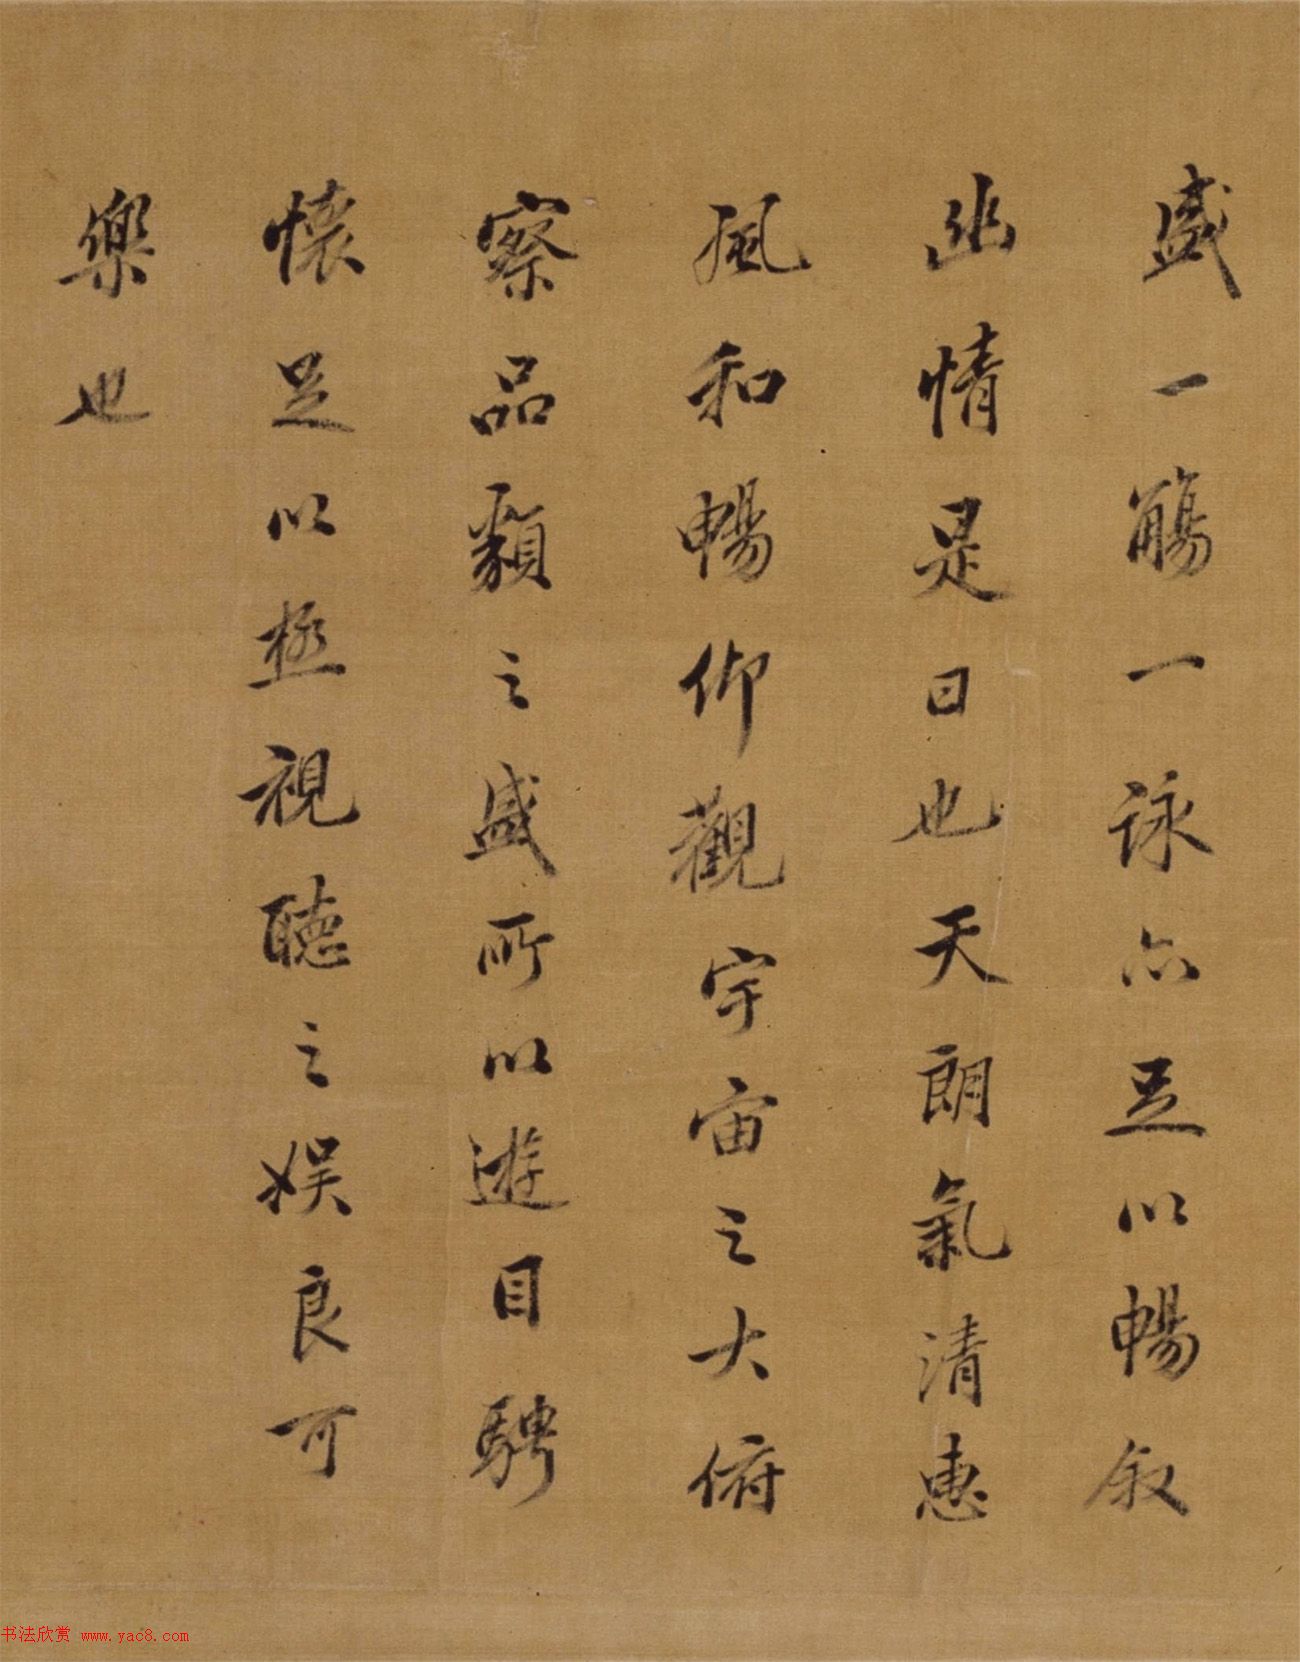 盛一觴一詠亦足以暢叙
幽情是日也天朗氣清惠
風和暢仰觀宇宙之大俯
察品類之盛所以遊目騁
懷足以極視聽之娱良可
樂也
书法欣赏 www.yac8.com